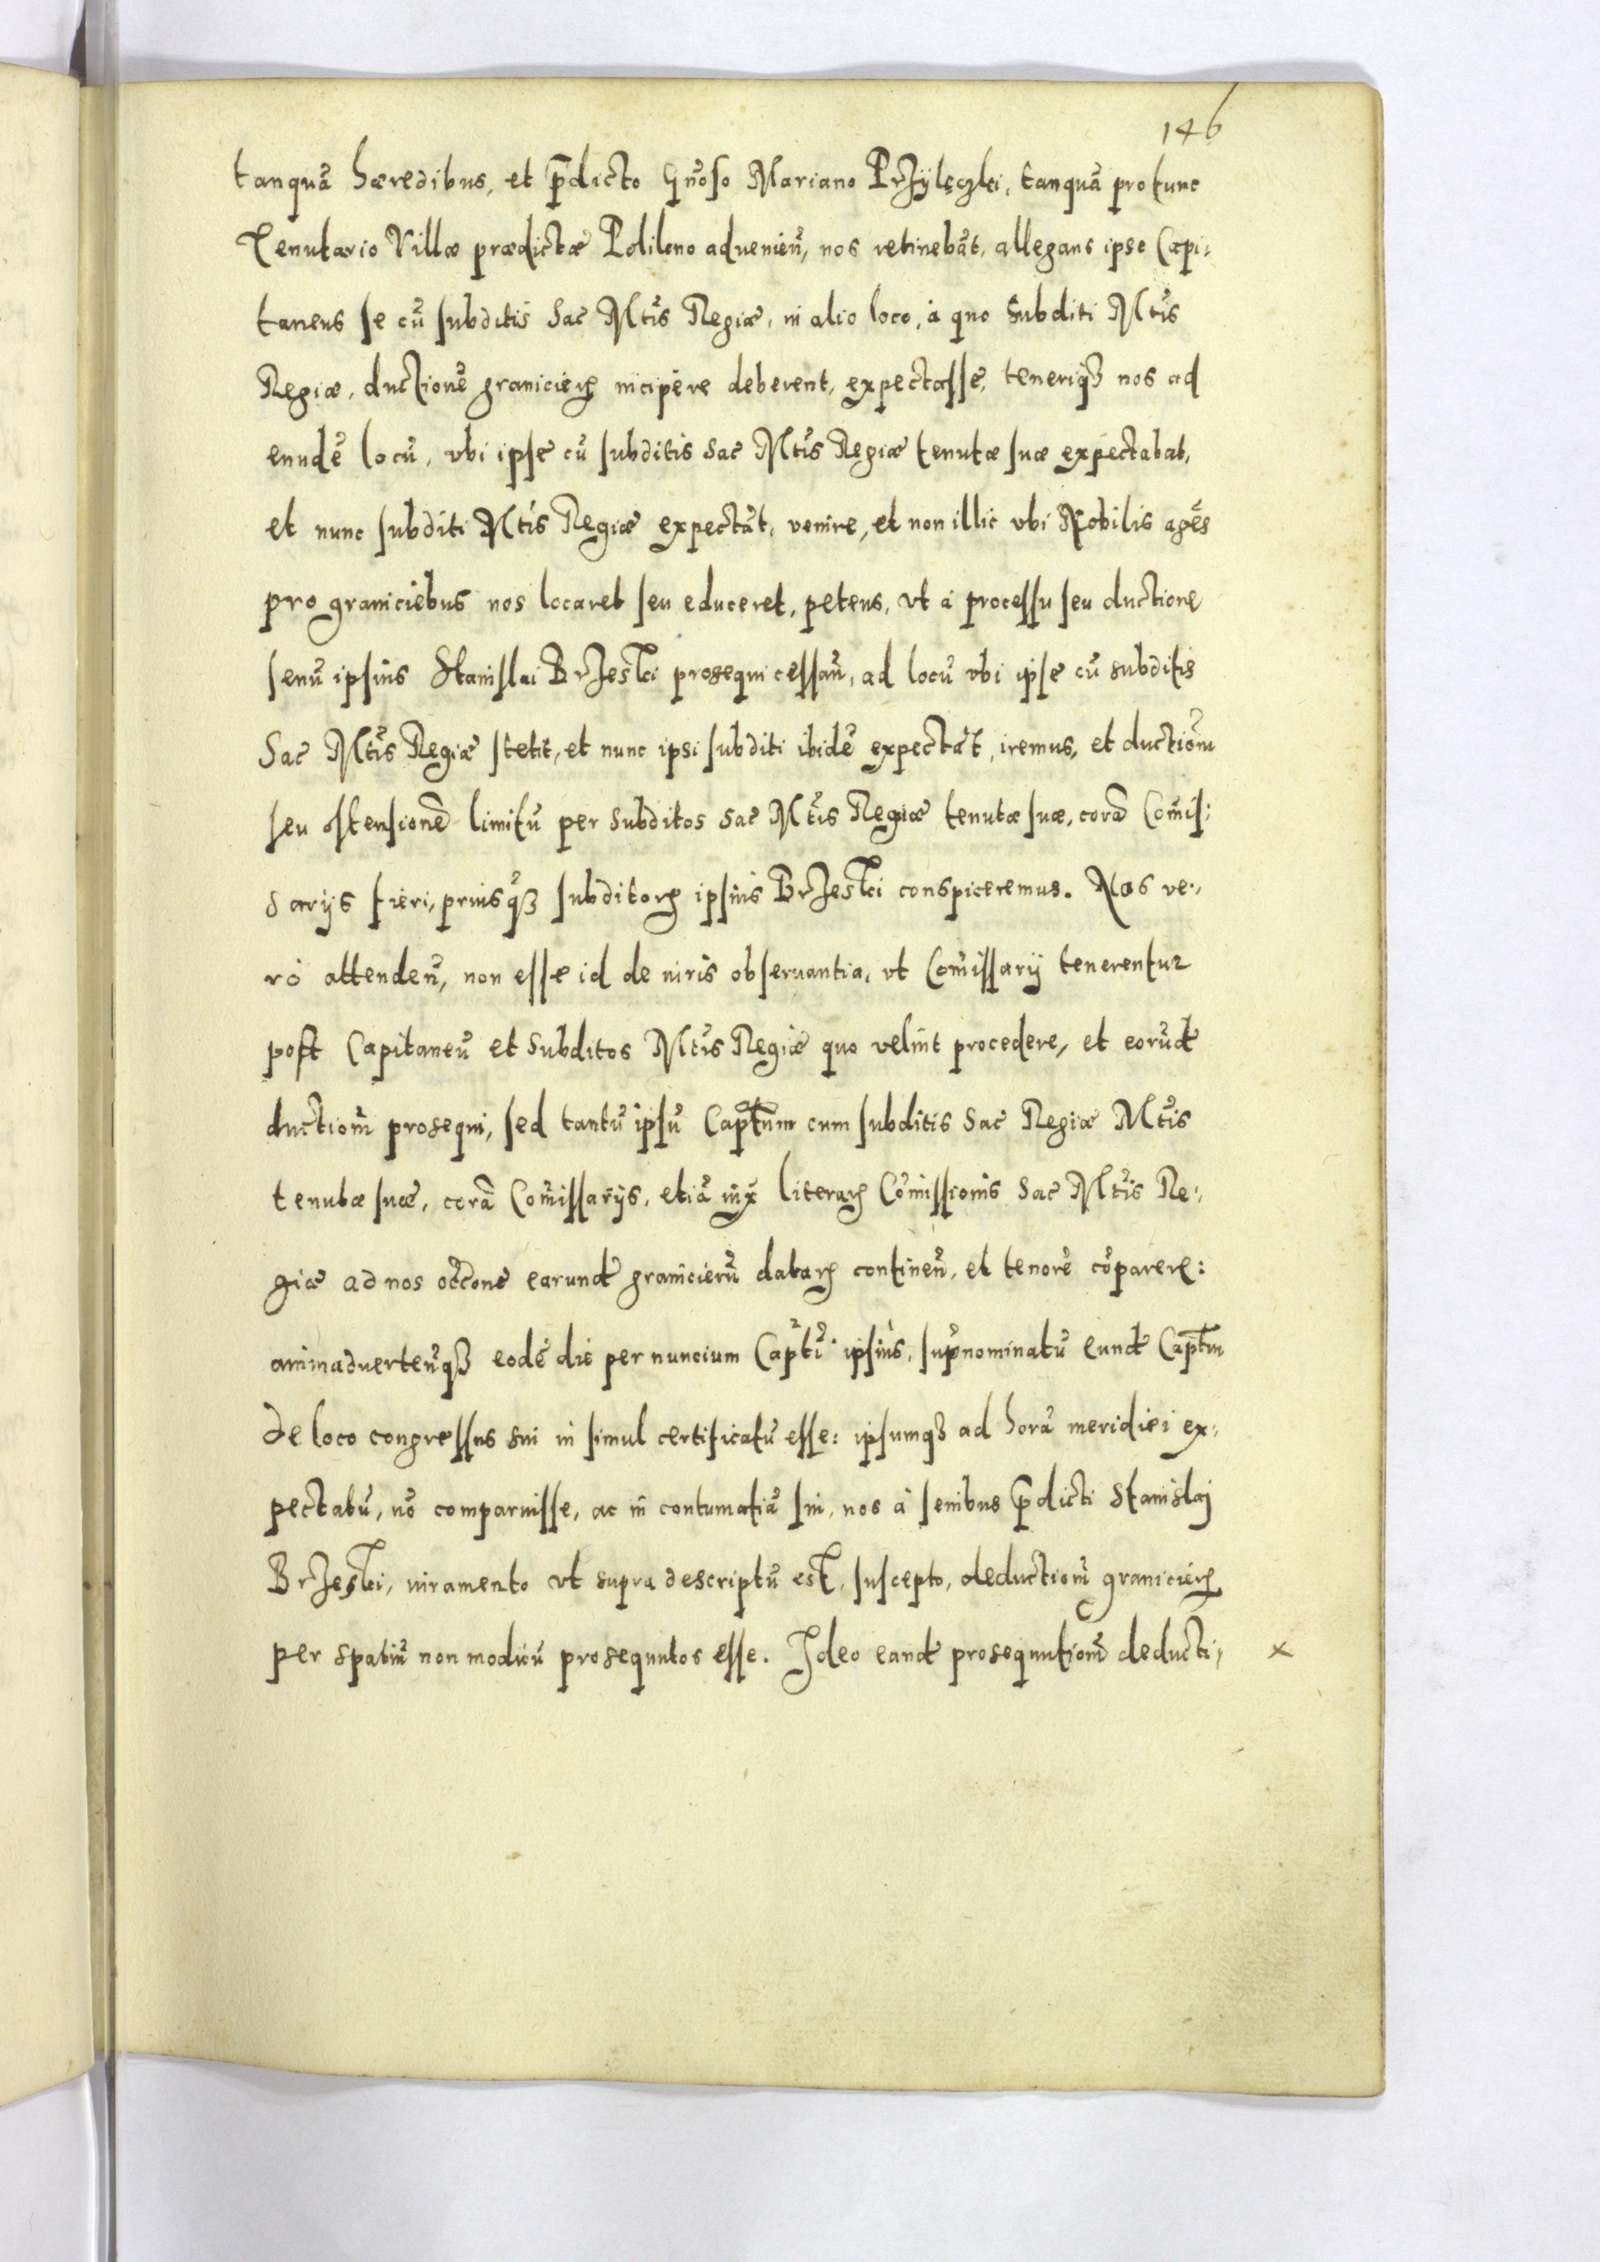 146
tanquā hæredibus, et p̄dicto Gn̄oso Mariano Przylęczki, tanquā protunc
Tenutario Villæ prædictæ Pdilono aduenieñ, nos retinebāt, allegans ipse Capi:
taneus se cū subditis Sac Mtis Regiæ, in alio loco, à quo Subditi Mtis
Regiæ, ductionē granicierꝝ incipere deberent, expectasse, teneriqꝫ nos ad
eundē locū, vbi ipse cū subditis Sac Mtis Regiæ tenutæ suæ expectabat,
et nunc subditi Mtis Regiæ expectāt, venire, et non illic vbi Nobilis agēs
pro graniciebus nos locaret seu educeret, petens, vt à processu seu ductione
senū ipsius Stanislai Brzeski prosequi cessañ, ad locū vbi ipse cū subditis
Sac Mtis Regiæ stetit, et nunc ipsi subditi ibidē expectāt, iremus, et ductiom̄
seu ostensionē limitū per subditos Sac Mtis Regiæ tenutæ suæ, corā Comis:
sarijs fieri, priusqꝫ subditorꝝ ipsius Brzeski conspiceremus. Nos ve:
rò attendeñ, non esse id de iuris obseruantia, vt Comissarij tenerentur
post Capitaneū et Subditos Mtis Regiæ quo velint procedere, et eorūd
ductiom̄ prosequi, sed tantū ipsū Captum cum subditis Sac Regiæ Mtis
tenutæ suæ, corā Comissarijs, etiā iux literarꝝ Comissionis Sac Mtis Re:
giæ ad nos occōne earund granicierū datarꝝ continēn, et tenorē cōparere:
animaduerteñqꝫ eodē die per nuncium Capti ipsius, supnominatū eund Captm
de loco congressus sui in simul certificatū esse: ipsumqꝫ ad horā meridiei ex:
pectatū, nō comparuisse, ac in contumatiā sui, nos à senibus p̄dicti Stanislaj
Brzeski, iuramento vt supra descriptū est, suscepto, deductiom̄ granicierꝝ
per spatiū non modicū prosequutos esse. Ideo eand prosequutiom̄ deducti: x